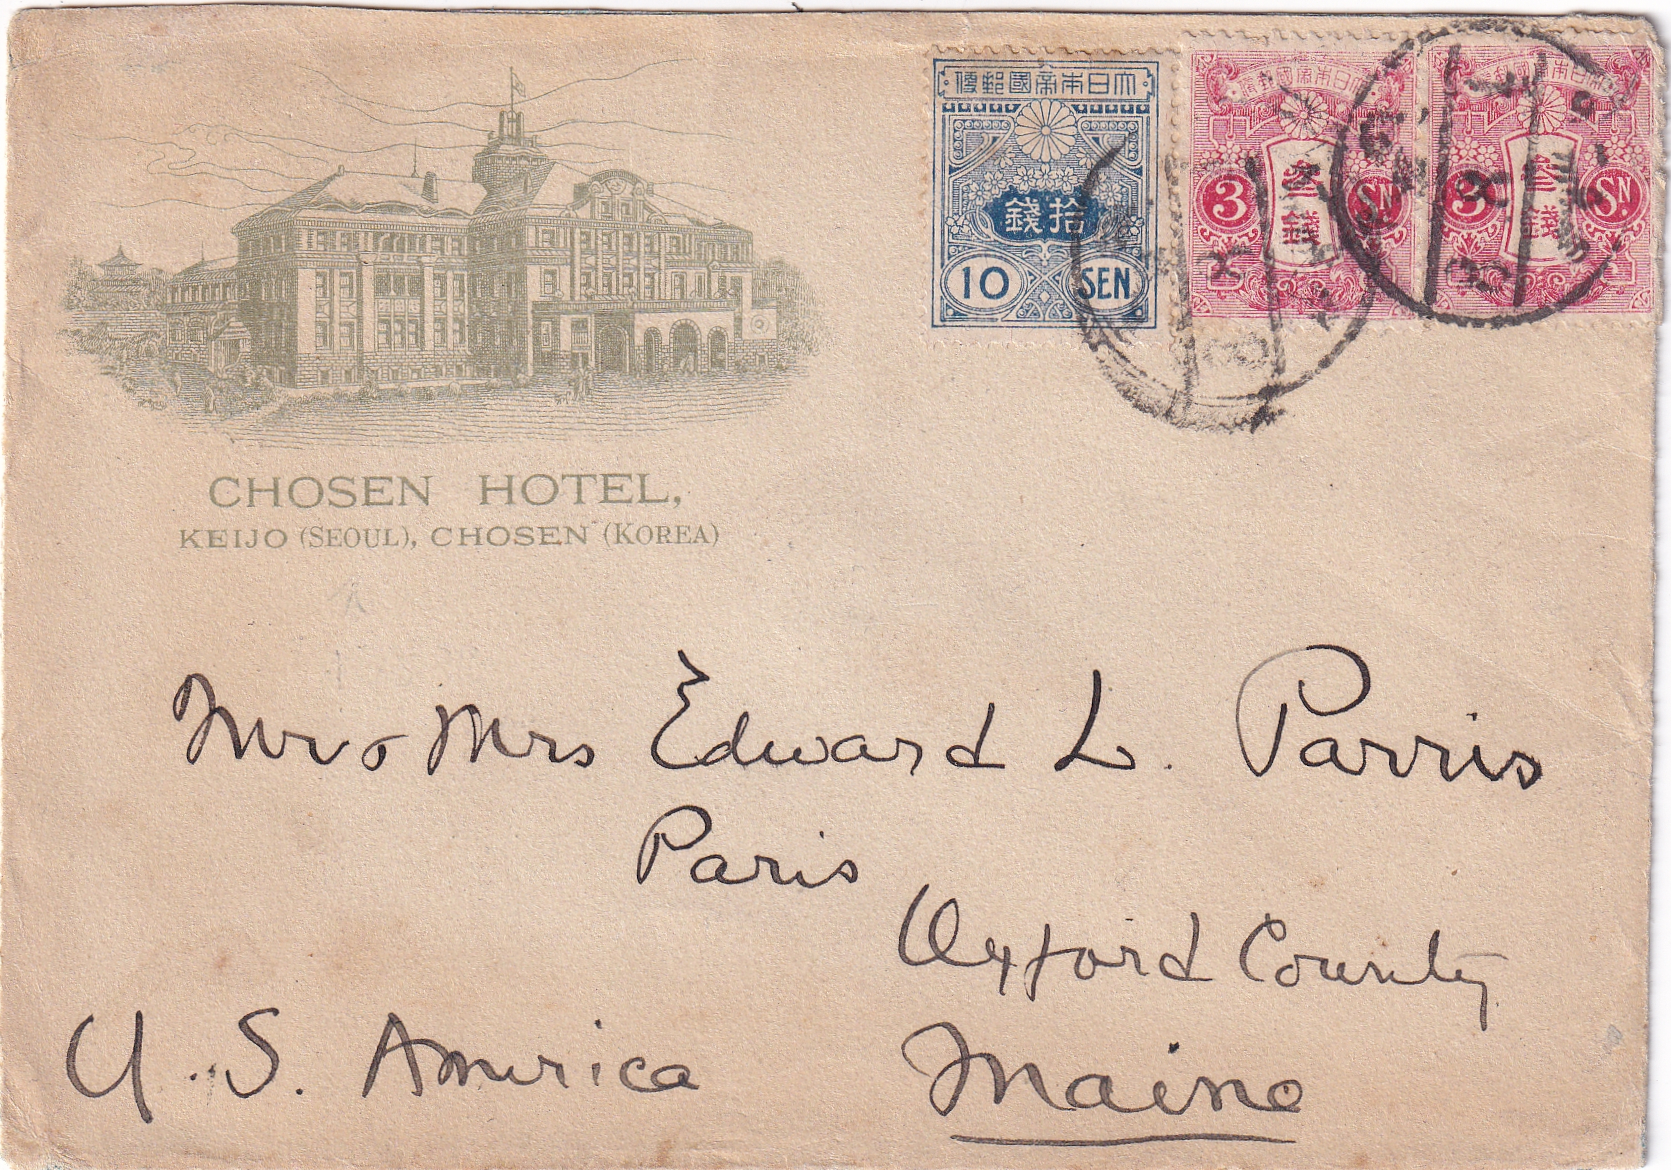 CHOSEN HOTEL,
KEIJO (SEOUL), CHOSEN (KOREA)
便郵國帝本日大
錢拾
10 SEN
便郵國帝本日大
3 参錢 SN
便郵國帝本日大
3 参錢 SN
Mr & Mrs Edward L. Parris
Paris
Oxford County
U.S. America
Maine